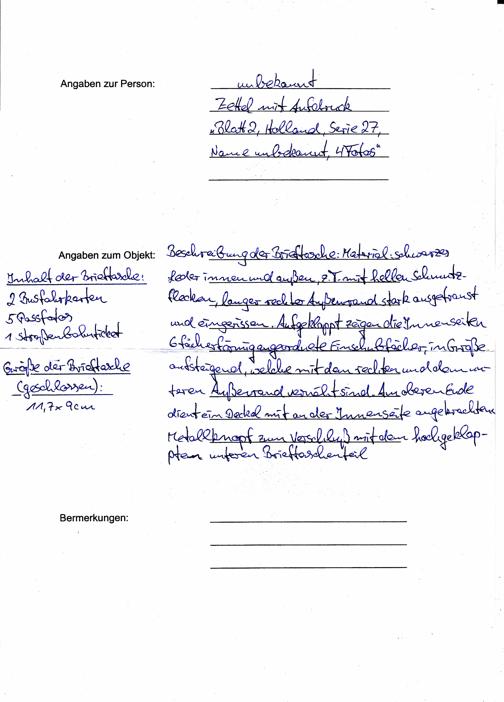 Angaben zur Person:
unbekannt
Zettel mit Aufdruck
„Blatt 2, Holland, Serie 27,
Name unbekannt, 4 Fotos"
Angaben zum Objekt:
Inhalt der Brieftasche:
2 Busfahrkarten
5 Passfotos
1 Straßenbahnticket
Größe der Brieftasche
(geschlossen):
11,7 x 9 cm
Beschreibung der Brieftasche: Material: schwarzes
Leder innen und außen, z.T. mit hellen Schmutz-
flecken, langer rechter Außenrand stark ausgefranst
und eingerissen. Aufgeklappt zeigen die Innenseiten
6 fächerförmig angeordnete Einschubfächer, in Größe
aufsteigend, welche mit dem rechten und dem un-
teren Außenrand vernäht sind. Am oberen Ende
dient ein Deckel mit an der Innenseite angebrachtem
Metallknopf zum Verschluß mit dem hochgeklap-
ptem unteren Brieftaschenteil
Bermerkungen: